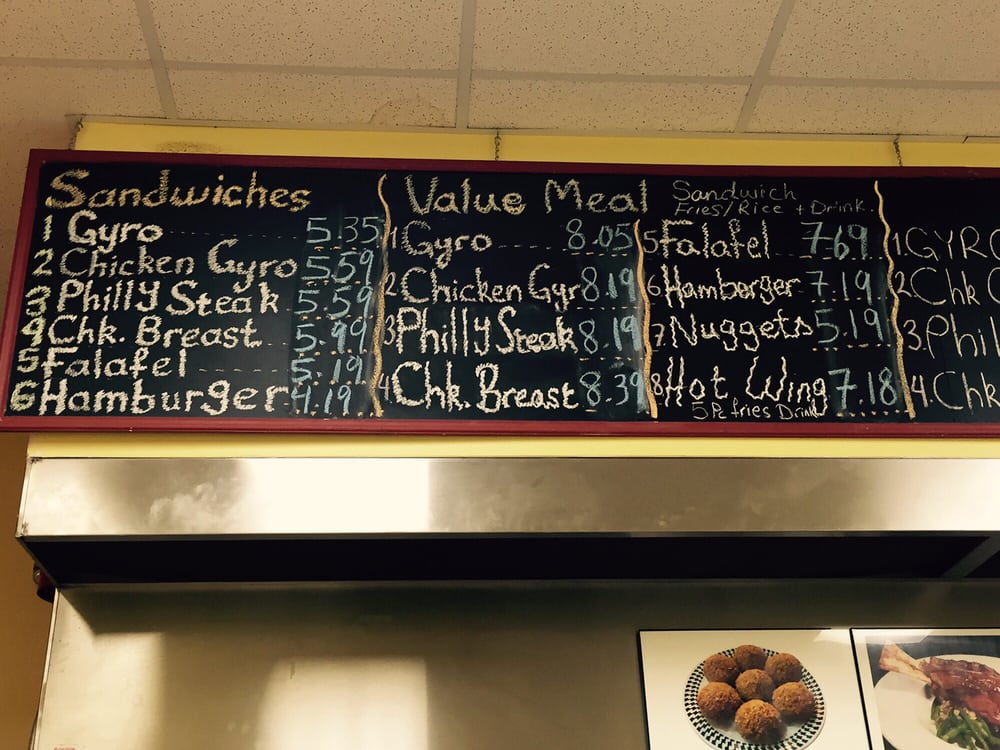 Sandwiches
1 Gyro 5.35
2 Chicken Gyro 5.59
3 Philly Steak 5.59
4 Chk. Breast 5.99
5 Falafel 5.19
6 Hamburger 4.19
Value Meal Sandwich
Fries/Rice + Drink.
1 Gyro 8.05
2 Chicken Gyr 8.19
3 Philly Steak 8.19
4 Chk. Breast 8.39
5 Falafel 7.69
6 Hamborger 7.19
7 Nuggets 5.19
8 Hot Wing 7.18
5 Pc fries Drink
1. GYRO
2 Chk
3. Phil
4. Chk